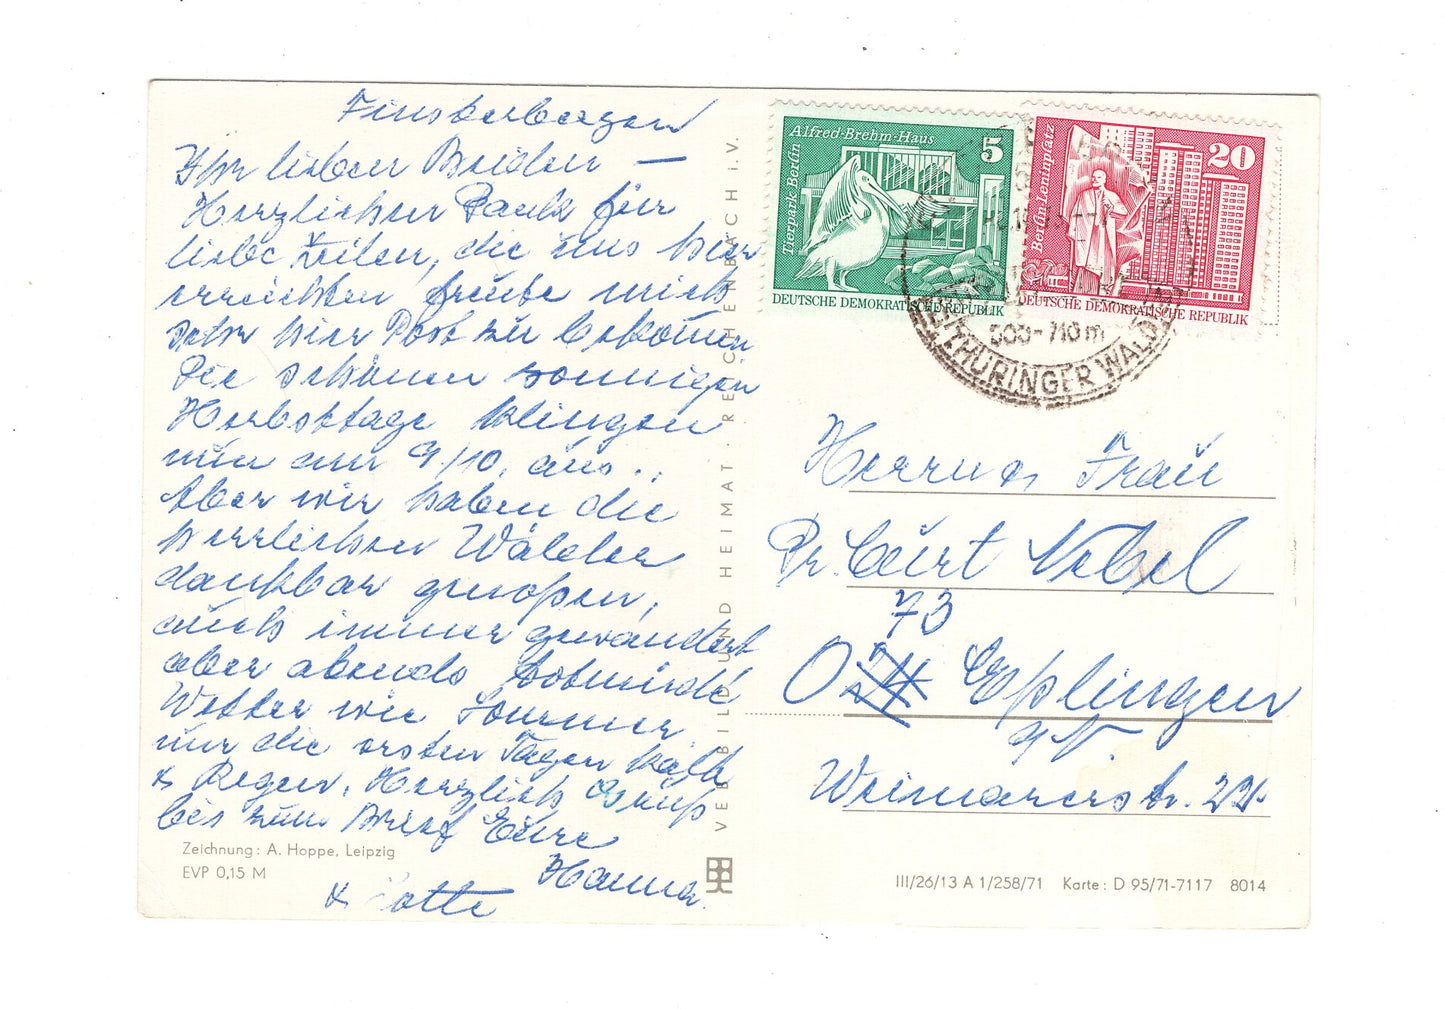 Finsterbergen
Ihr lieben Beiden —
Herzlichen Dank für
liebe Zeilen, die uns hier
erreichten freute mich
sehr hier Post zu bekomen
Die schönen sonnigen
Herbsttage klingen
nun am 9/10. aus..
Aber wir haben die
herrlichen Wälder
dankbar genoßen,
auch immer gewandert
aber abends
Wetter wie Sommer
nur die ersten Tagen kalt
& Regen, Herzlich Gruß
bis zum Brief Eure
Hanna
& Lotte
Zeichnung: A. Hoppe, Leipzig
EVP 0,15 M
VEB BILD UND HEIMAT · REICHENBACH i. V.
Alfred-Brehm-Haus
5
Tierpark Berlin
DEUTSCHE DEMOKRATISCHE REPUBLIK
20
Berlin, Leninplatz
DEUTSCHE DEMOKRATISCHE REPUBLIK
500-710 m
THÜRINGER WALD
Herrn u. Frau
Dr. Curt Nebel
73
Eßlingen
a/N.
Weimarerstr. 22.
III/26/13 A 1/258/71 Karte: D 95/71-7117 8014